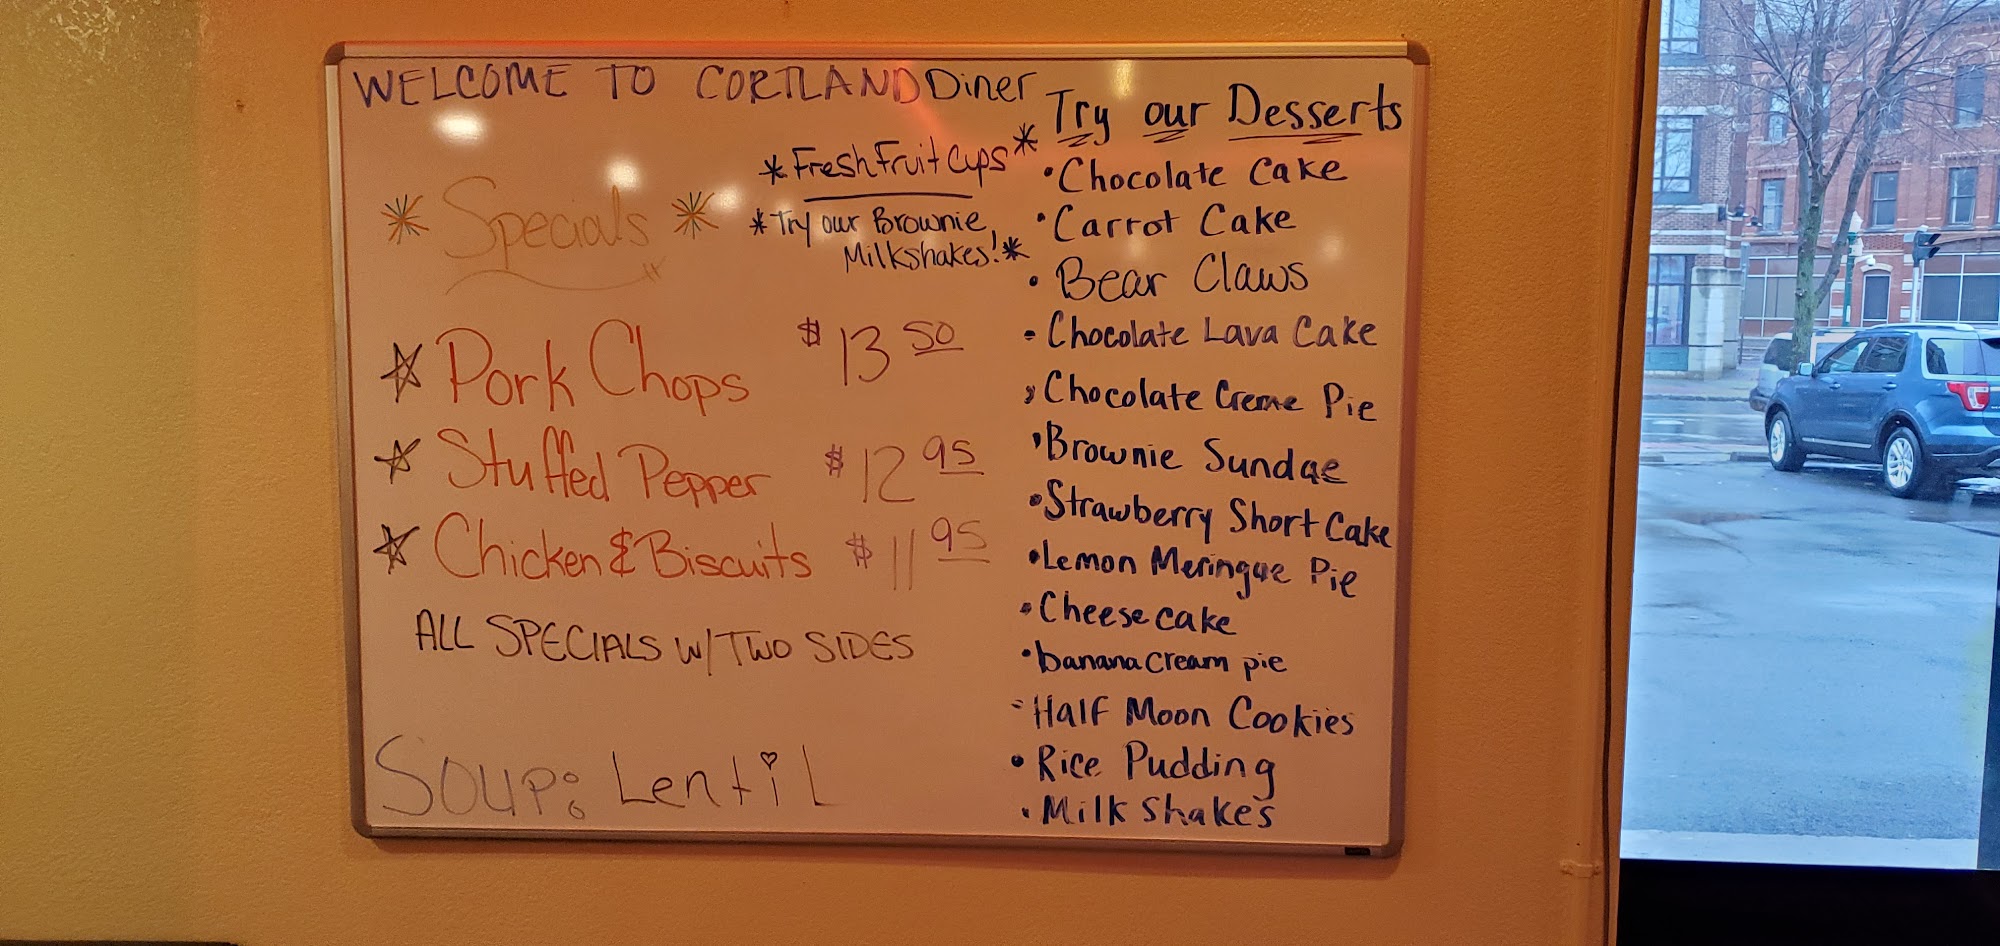 WELCOME TO CORTLAND Diner
* Fresh Fruit Cups *
* Try our Brownie
Milkshakes! *
* Specials *
Pork Chops $13 50
Stuffed Pepper $12 95
Chicken & Biscuits $11 95
ALL SPECIALS W/ TWO SIDES
Soup: Lentil
Try our Desserts
• Chocolate Cake
• Carrot Cake
• Bear Claws
• Chocolate Lava Cake
• Chocolate Creme Pie
• Brownie Sundae
• Strawberry Short Cake
• Lemon Meringue Pie
• Cheese cake
• banana cream pie
• Half Moon Cookies
• Rice Pudding
• Milk Shakes